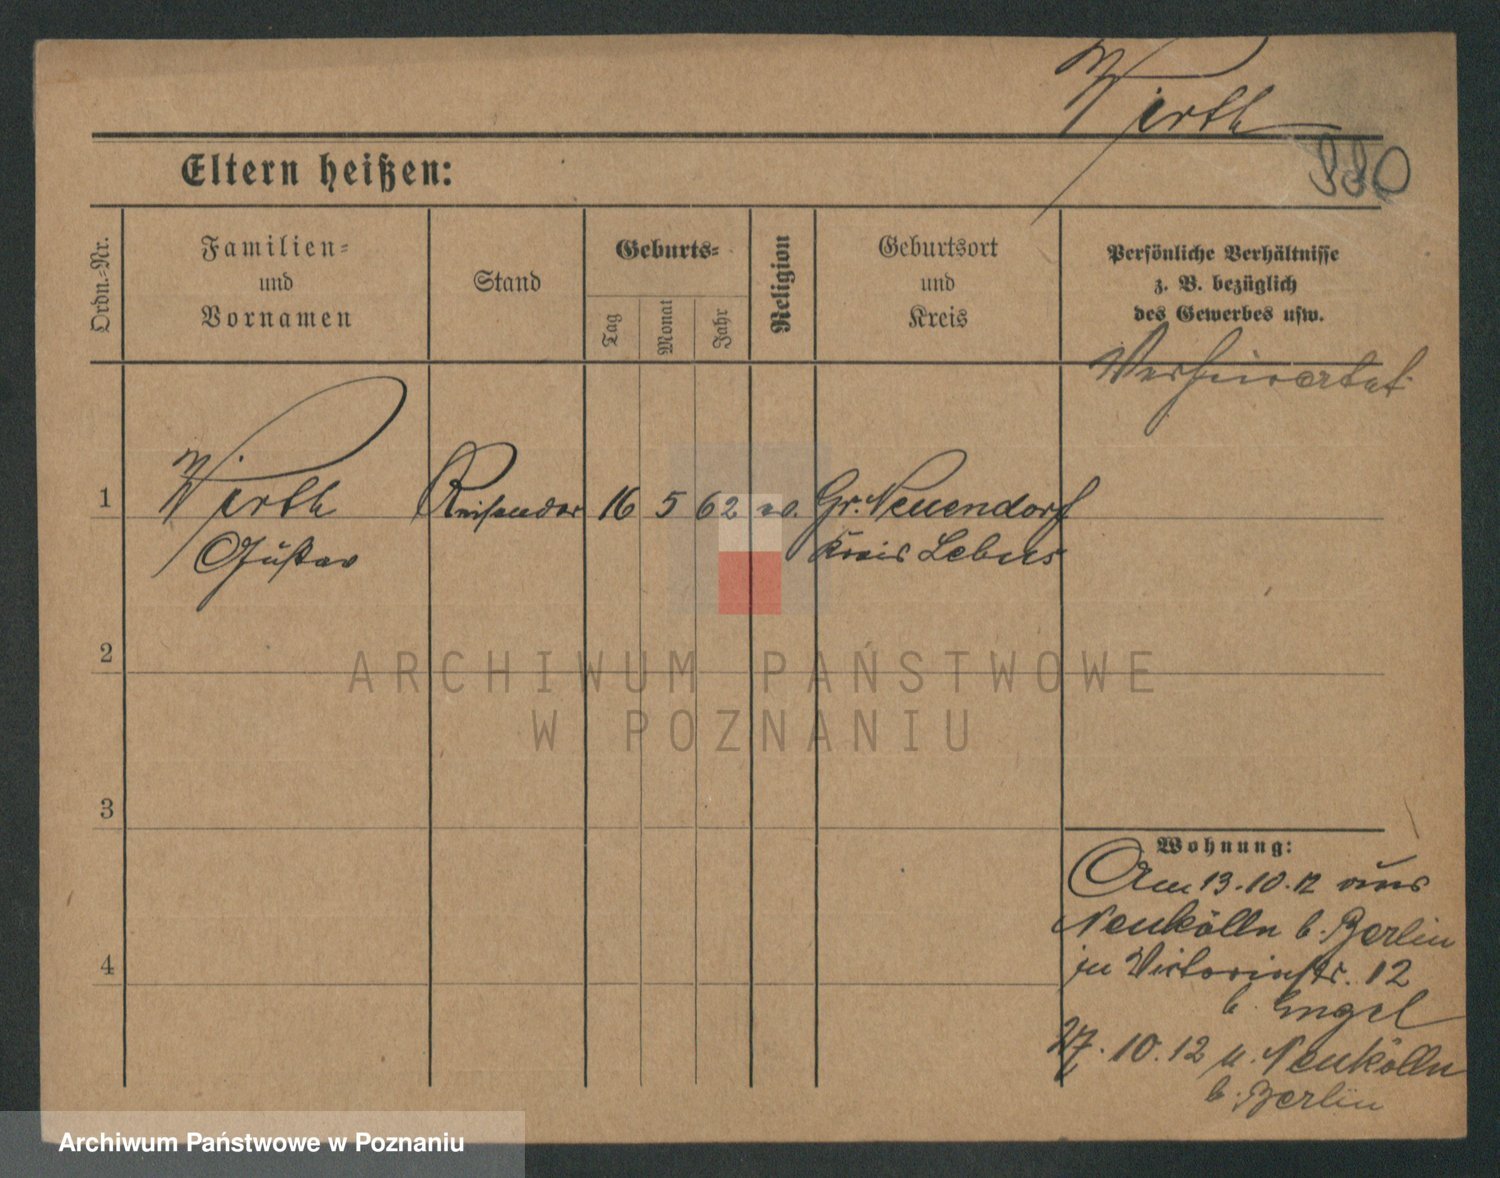 Wirth
Eltern heißen:
990
Ordn.-Nr.
Familien-
und
Vornamen
Stand
Geburts-
Tag
Monat
Jahr
Religion
Geburtsort
und
Kreis
Persönliche Verhältnisse
z. B. bezüglich
des Gewerbes usw.
Verheiratet
1
Wirth
Gustav
Reisender
16 5 62
ev.
Gr. Neuendorf
Kreis Lebus
2
ARCHIWUM PAŃSTWOWE
W POZNANIU
3
4
Wohnung:
Am 13.10.12 aus
Neukölln b. Berlin
in Victoriastr. 12
b. Engel
27.10.12 n. Neukölln
b. Berlin
Archiwum Państwowe w Poznaniu